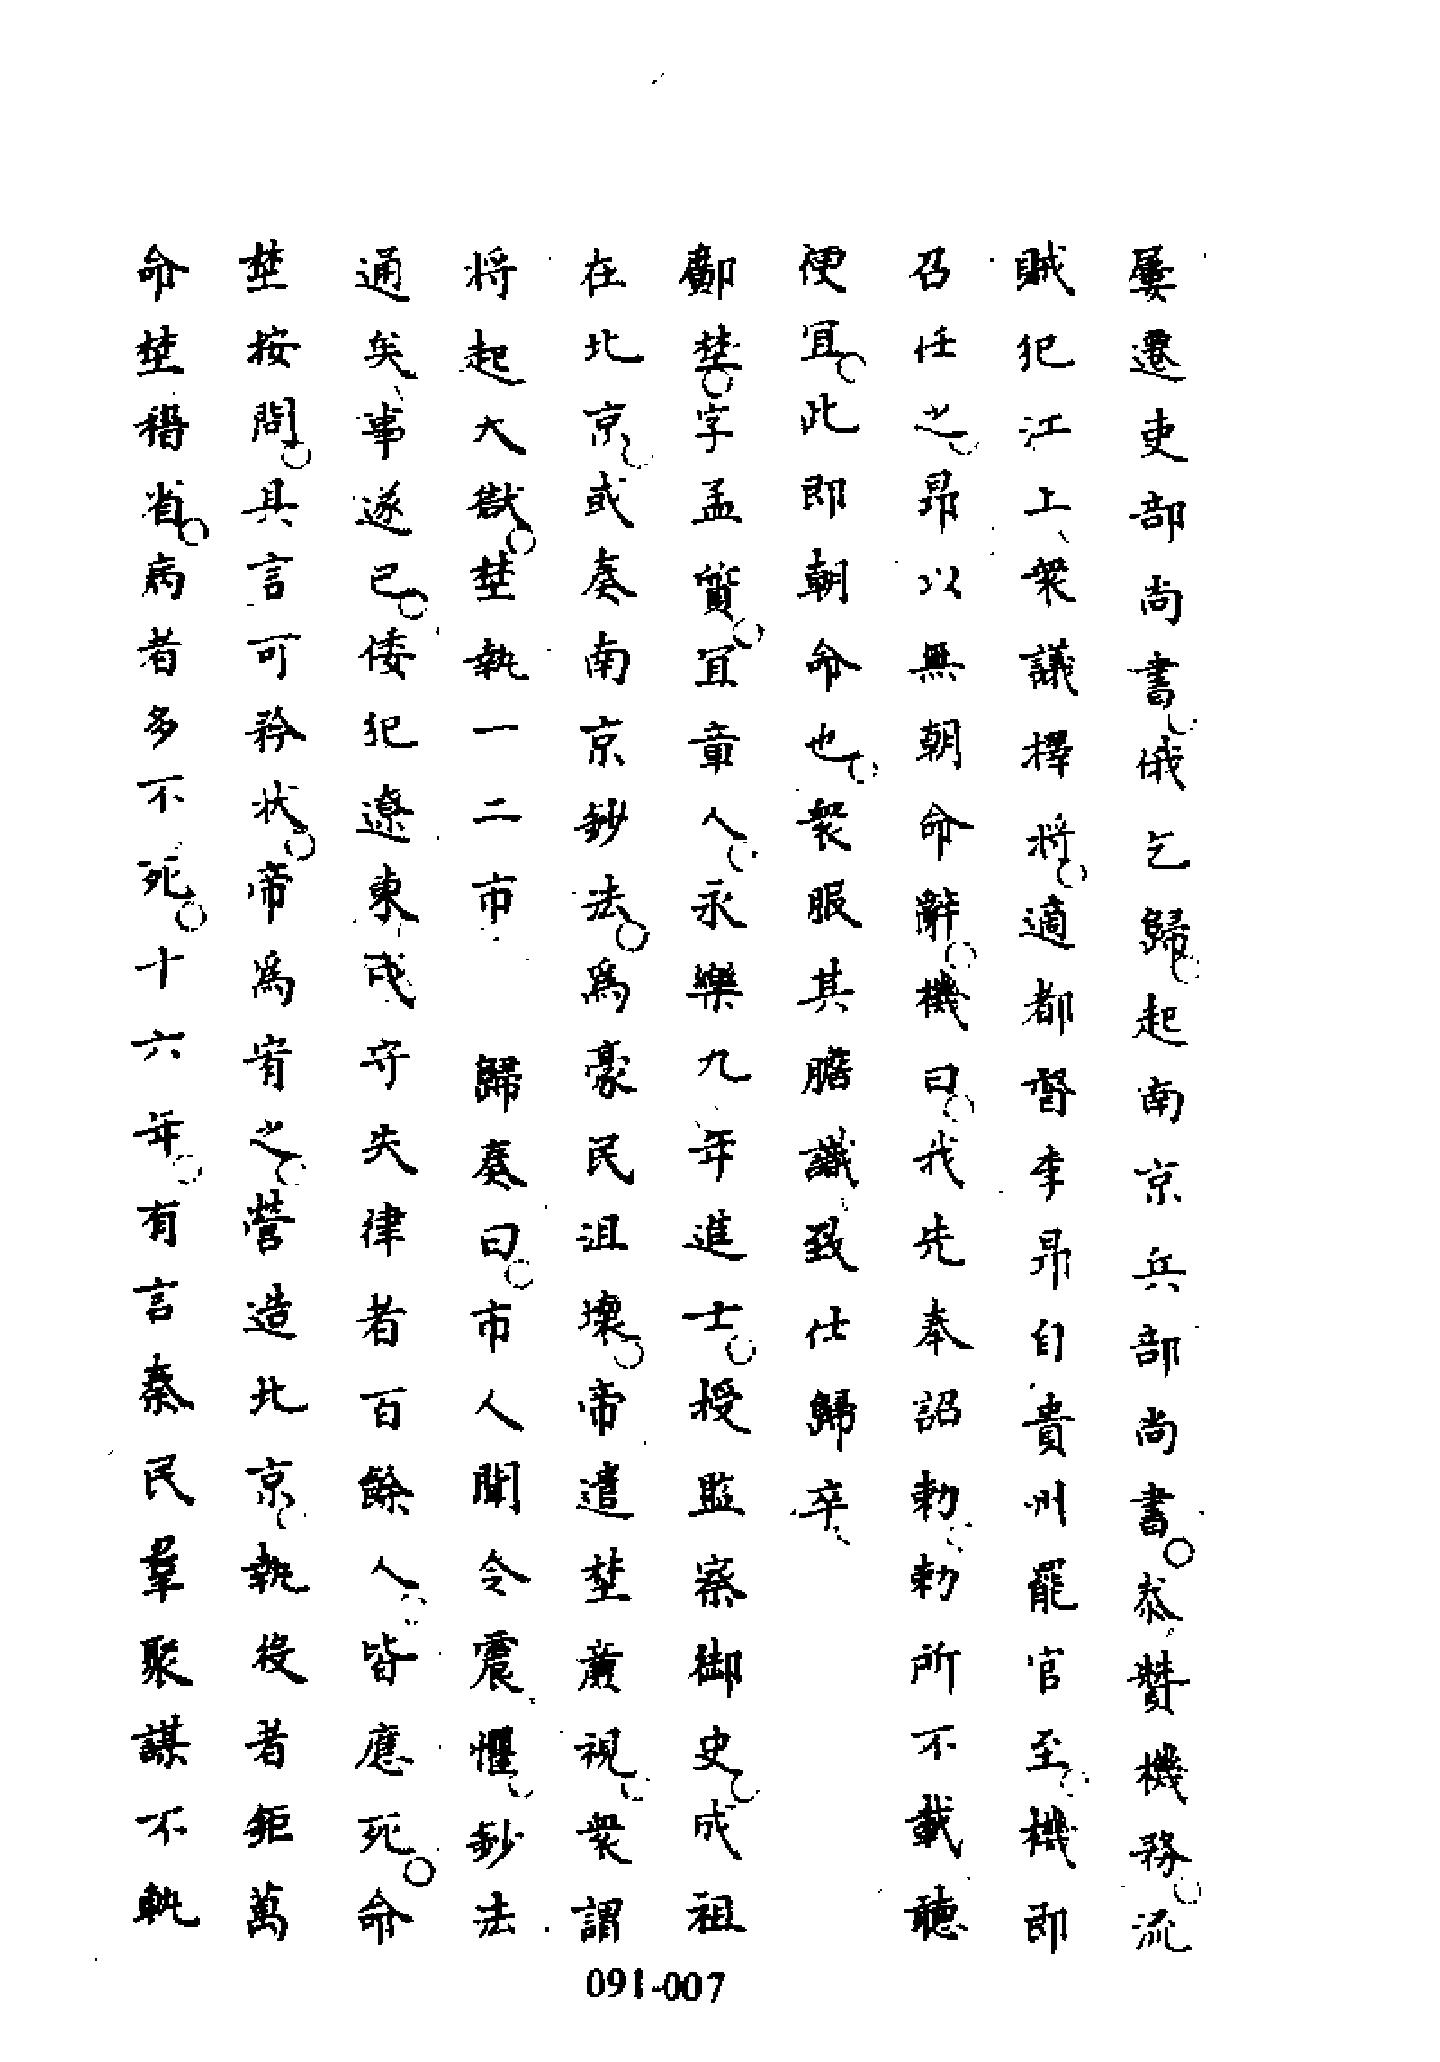 屢遷吏部尚書俄乞歸起南京兵部尚書叅贊機務流
賊犯江上衆議擇將適都督李昂自貴州罷官至機即
召任之昂以無朝命辭機曰我先奉詔勅勅所不載聽
便宜此即朝命也衆服其膽識致仕歸卒
鄺埜字孟質宜章人永樂九年進士授監察御史成祖
在北京或奏南京鈔法為豪民沮壞帝遣埜廉視衆謂
將起大獄埜執一二市 歸奏曰市人聞令震懼鈔法
通矣事遂已倭犯遼東戍守失律者百餘人皆應死命
埜按問具言可矜狀帝為宥之營造北京執役者鉅萬
命埜稽省病者多不死十六年有言秦民羣聚謀不軌
091-007